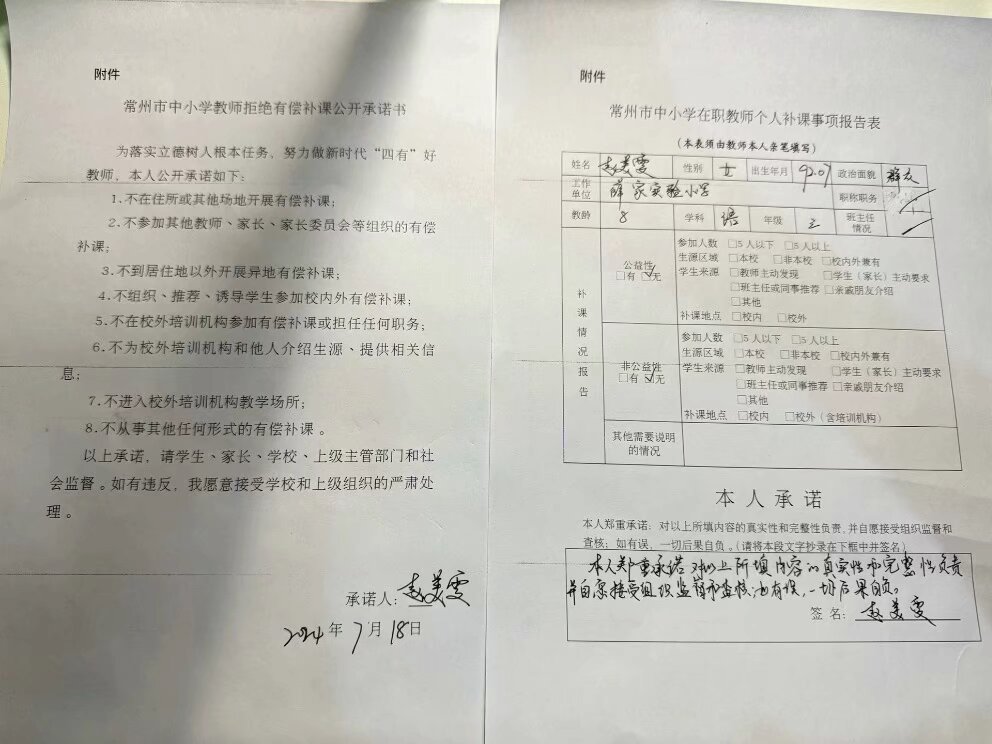 附件
常州市中小学教师拒绝有偿补课公开承诺书
为落实立德树人根本任务，努力做新时代“四有”好
教师，本人公开承诺如下：
1.不在住所或其他场地开展有偿补课；
2.不参加其他教师、家长、家长委员会等组织的有偿
补课；
3.不到居住地以外开展异地有偿补课；
4.不组织、推荐、诱导学生参加校内外有偿补课；
5.不在校外培训机构参加有偿补课或担任任何职务；
6.不为校外培训机构和他人介绍生源、提供相关信
息；
7.不进入校外培训机构教学场所；
8.不从事其他任何形式的有偿补课。
以上承诺，请学生、家长、学校、上级主管部门和社
会监督。如有违反，我愿意接受学校和上级组织的严肃处
理。
承诺人：赵美雯
2024年7月18日
附件
常州市中小学在职教师个人补课事项报告表
（本表须由教师本人亲笔填写）
姓名 赵美雯 性别 女 出生年月 92.07 政治面貌 群众
工作单位 薛家实验小学 职称职务
教龄 8 学科 语 年级 三 班主任情况
补课情况报告
公益性
□有 □√无
参加人数 □5人以下 □5人以上
生源区域 □本校 □非本校 □校内外兼有
学生来源 □教师主动发现 □学生（家长）主动要求
□班主任或同事推荐 □亲戚朋友介绍
□其他
补课地点 □校内 □校外
非公益性
□有 □√无
参加人数 □5人以下 □5人以上
生源区域 □本校 □非本校 □校内外兼有
学生来源 □教师主动发现 □学生（家长）主动要求
□班主任或同事推荐 □亲戚朋友介绍
□其他
补课地点 □校内 □校外（含培训机构）
其他需要说明
的情况
本人承诺
本人郑重承诺：对以上所填内容的真实性和完整性负责，并自愿接受组织监督和
查核；如有误，一切后果自负。（请将本段文字抄录在下框中并签名）
本人郑重承诺 对以上所填内容的真实性和完整性负责
并自愿接受组织监督和查核；如有误，一切后果自负。
签名：赵美雯